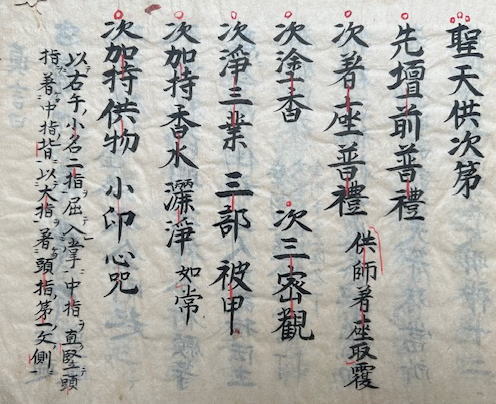 聖天供次第
先壇前普禮
次着座普禮 供師着座取覆
次塗香 次三密觀
次淨三業 三部 被甲
次加持香水 灑淨 如常
次加持供物 小印心咒
以右手小名二指屈入掌中指直竪頭
指着中指背以大指着頭指第一文側